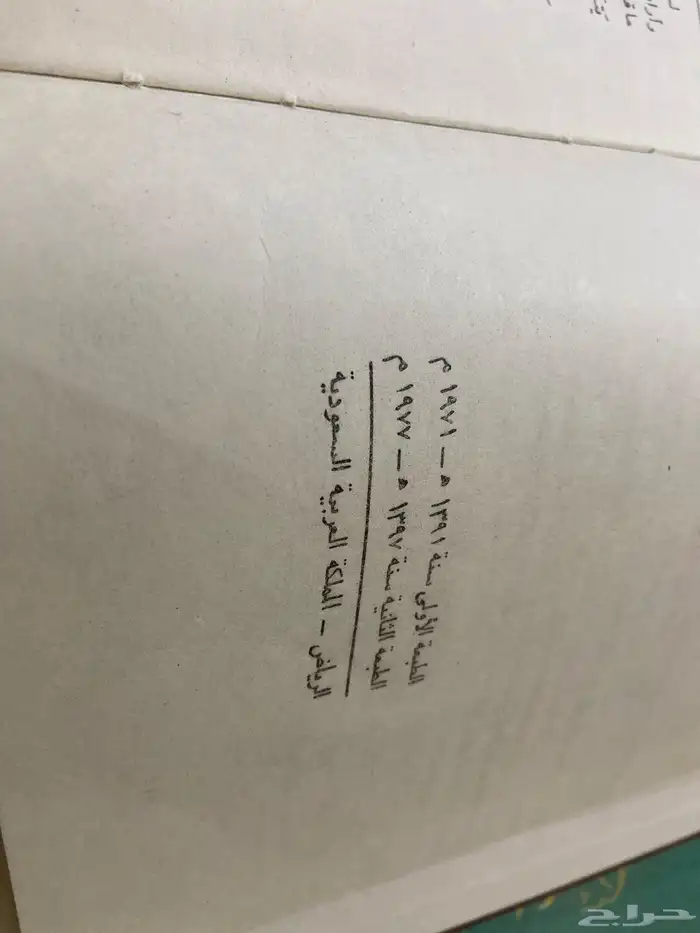 الطبعة الأولى سنة ١٣٩١ هـ — ١٩٧١ م
الطبعة الثانية سنة ١٣٩٧ هـ — ١٩٧٧ م
الرياض — المملكة العربية السعودية
حراج